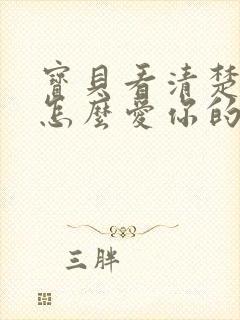 寶貝看清楚
怎麼愛你的
三胖